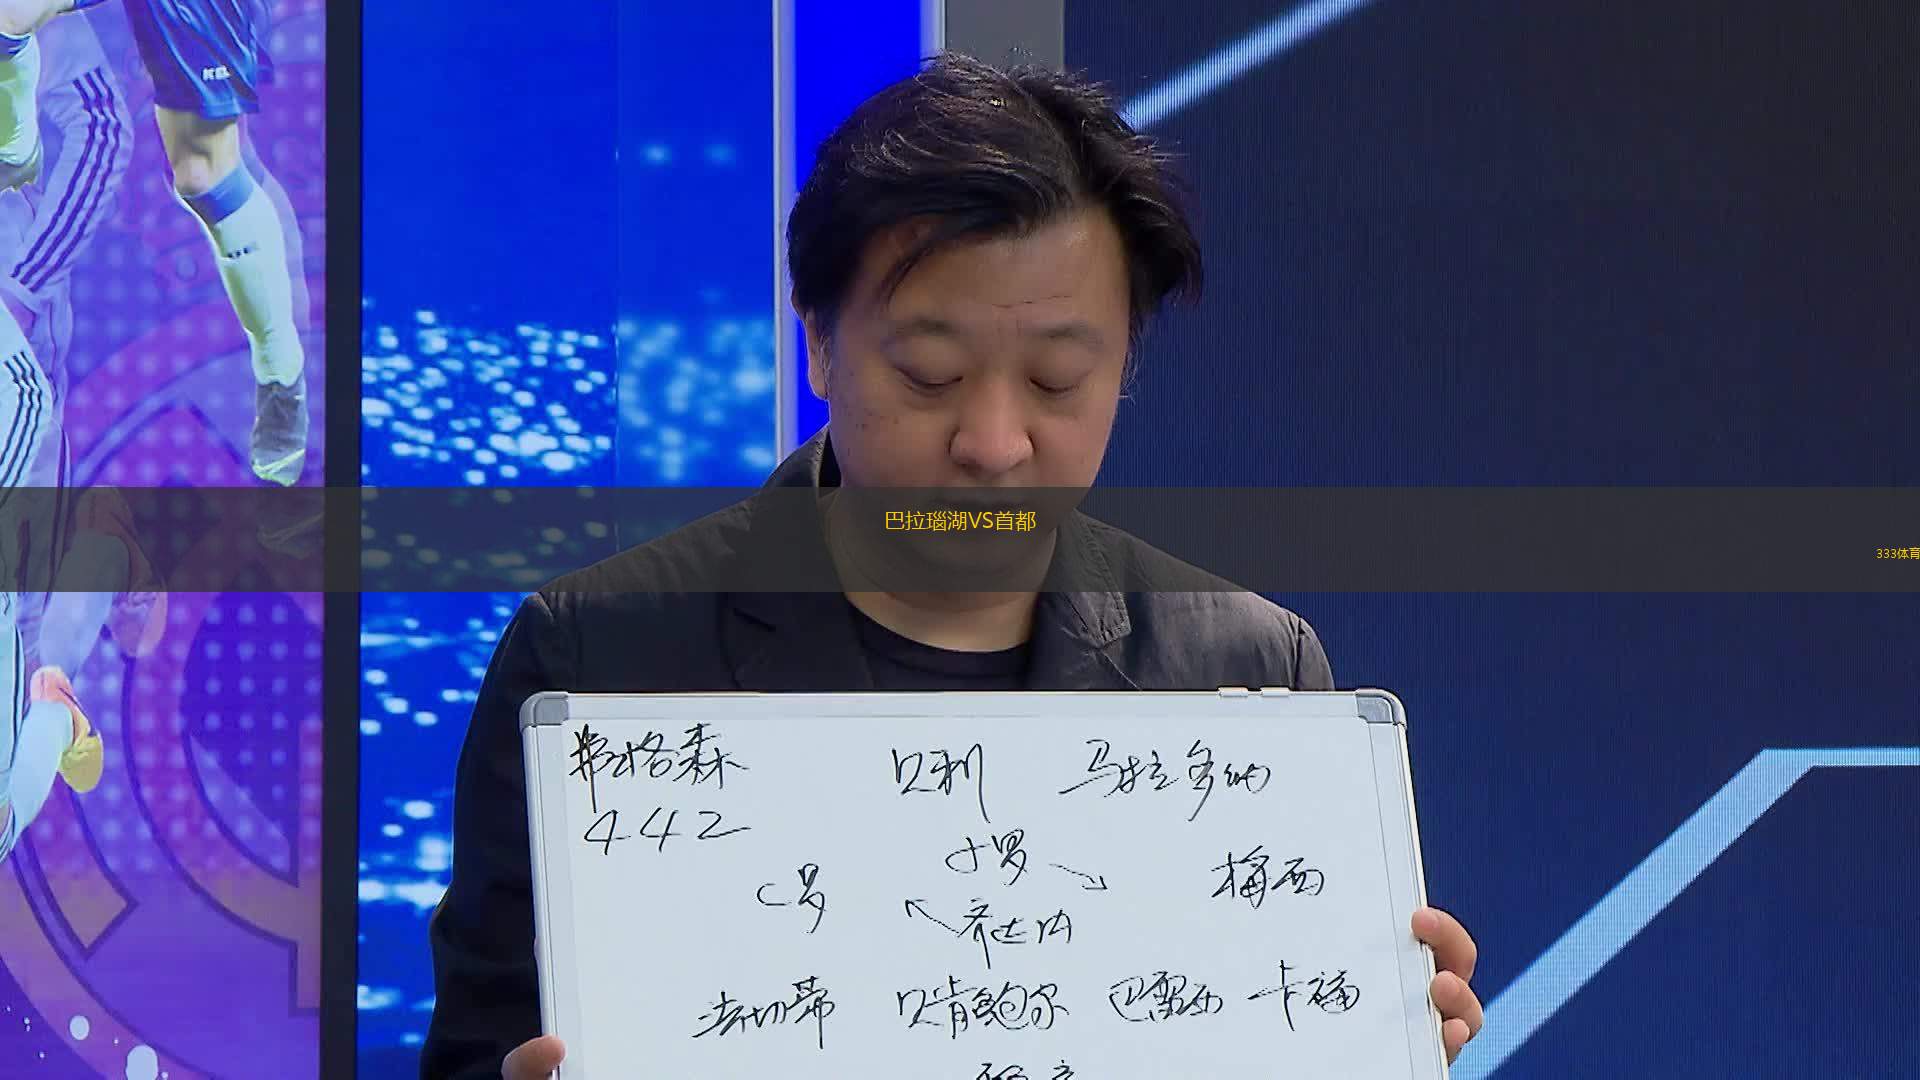 巴拉瑙湖VS首都
333体育
弗格森 贝利 马拉多纳
442
小罗
C罗 梅西
齐达内
法切蒂 贝肯鲍尔 巴雷西 卡福